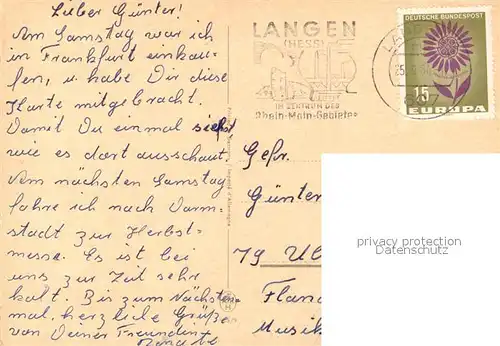 Lieber Günter!
Am Samstag war ich
in Frankfurt einkau-
fen, u. habe Dir diese
Karte mitgebracht.
Damit Du einmal siehst
wie es dort ausschaut.
Am nächsten Samstag
fahre ich nach Darm-
stadt zur Herbst-
messe. Es ist bei
uns zur Zeit sehr
kalt. Bis zum Nächsten-
mal, herzliche Grüße
von Deiner Freundin
LANGEN
(HESS)
IM ZENTRUM DES
Rhein-Main-Gebietes
DEUTSCHE BUNDESPOST
15
EUROPA
Gefr.
Günter
79 Ul
Flan
Musik
privacy protection
Datenschutz